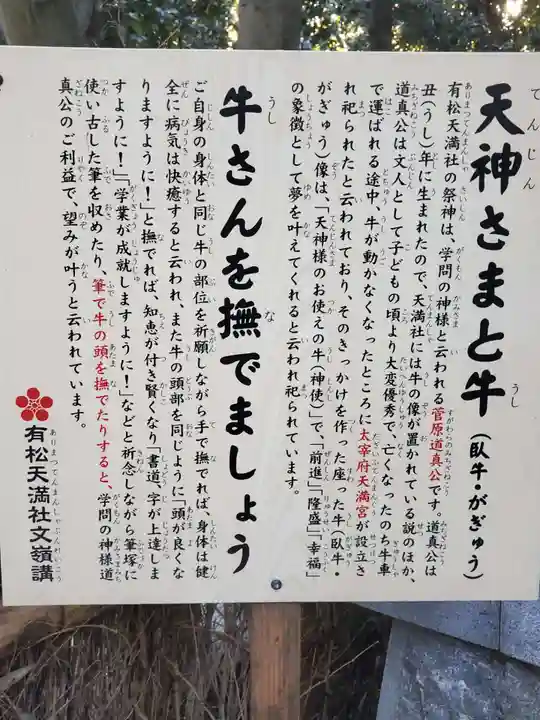 天神さまと牛(臥牛・がぎゅう)
有松天満社の祭神は、学問の神様と云われる菅原道真公です。道真公は
丑(うし)年に生まれたので、天満社には牛の像が置かれている説のほか、
道真公は文人として子どもの頃より大変優秀で、亡くなったのち牛車
で運ばれる途中、牛が動かなくなったところに太宰府天満宮が設立さ
れ祀られたと云われており、そのきっかけを作った座った牛(臥牛・
がぎゅう)像は、「天神様のお使えの牛(神使)」で、「前進」「隆盛」「幸福」
の象徴として夢を叶えてくれると云われ祀られています。
牛さんを撫でましょう
ご自身の身体と同じ牛の部位を祈願しながら手で撫でれば、身体は健
全に病気は快癒すると云われ、また牛の頭部を同じように「頭が良くな
りますように!」と撫でれば、知恵が付き賢くなり「書道、字が上達しま
すように!」「学業が成就しますように!」などと祈念しながら筆塚に
使い古した筆を収めたり、筆で牛の頭を撫でたりすると、学問の神様道
真公のご利益で、望みが叶うと云われています。
有松天満社文嶺講